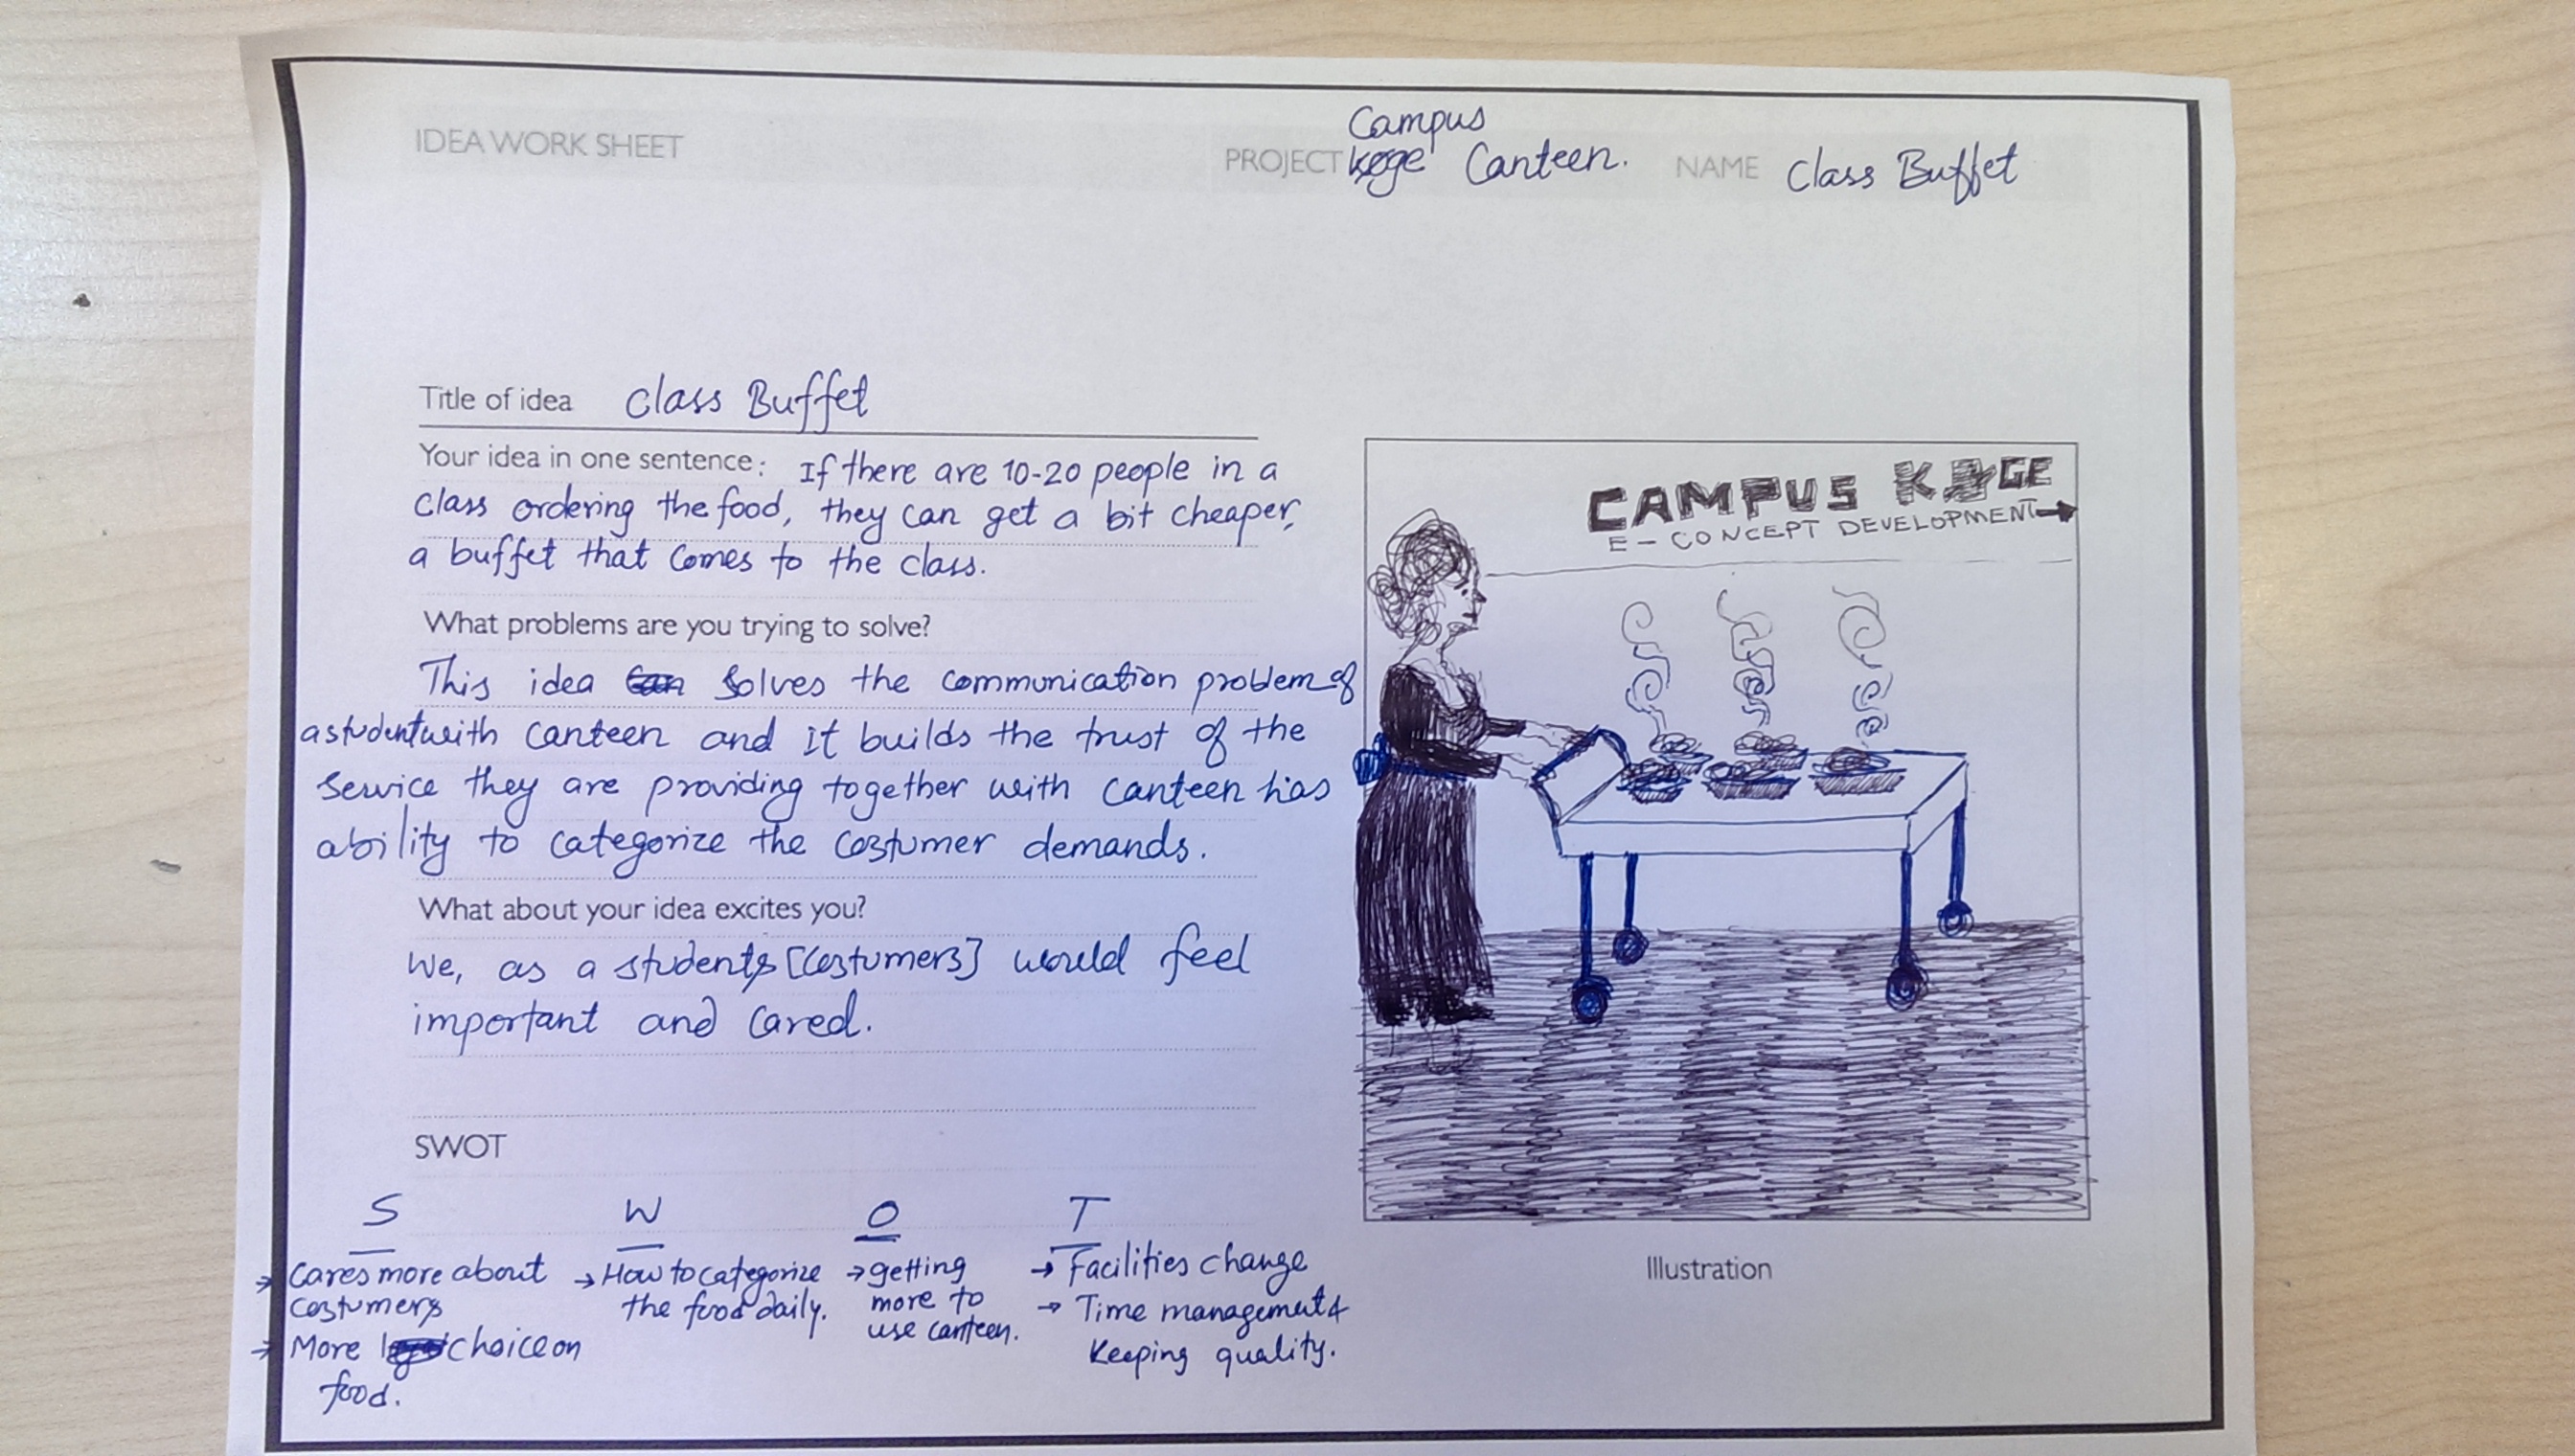 IDEA WORK SHEET
Campus
PROJECT køge Canteen. NAME Class Buffet
Title of idea Class Buffet
Your idea in one sentence: If there are 10-20 people in a
class ordering the food, they can get a bit cheaper,
a buffet that comes to the class.
What problems are you trying to solve?
This idea can solves the communication problem of
a student with canteen and it builds the trust of the
service they are providing together with canteen has
ability to categorize the costumer demands.
What about your idea excites you?
We, as a students [costumers] would feel
important and cared.
SWOT
S
→ Cares more about
costumers
→ More choice on
food.
W
→ How to categorize
the food daily.
O
→ getting
more to
use canteen.
T
→ Facilities change
→ Time management &
Keeping quality.
CAMPUS KØGE
E-CONCEPT DEVELOPMENT →
Illustration